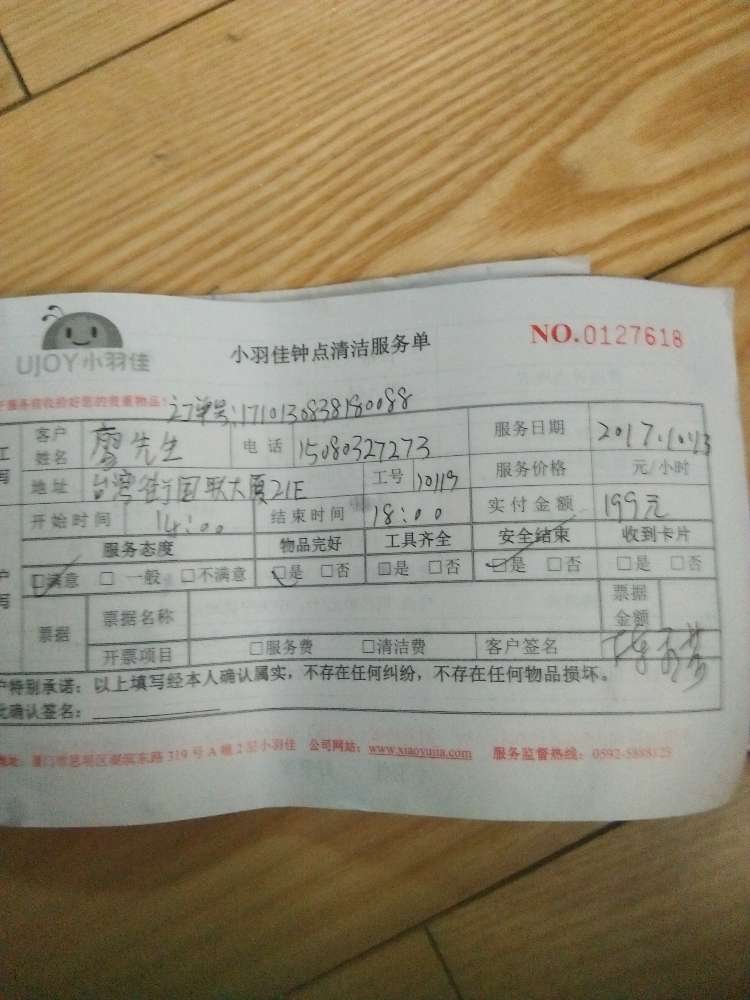 UJOY小羽佳
小羽佳钟点清洁服务单
NO.0127618
服务前收拾好您的贵重物品!
订单号:1710130838180088
客户姓名 廖先生 电话 15080327273 服务日期 2017.10.13
地址 台湾街国联大厦21E 工号 10119 服务价格 元/小时
开始时间 14:00 结束时间 18:00 实付金额 199元
服务态度 物品完好 工具齐全 安全结束 收到卡片
☑满意 □一般 □不满意 ☑是 □否 □是 □否 ☑是 □否 □是 □否
票据 票据名称 票据金额
开票项目 □服务费 □清洁费 客户签名
户特别承诺:以上填写经本人确认属实,不存在任何纠纷,不存在任何物品损坏。
此确认签名:
地址:厦门市思明区湖滨东路 319 号 A 幢 2 层小羽佳 公司网站:www.xiaoyujia.com 服务监督热线:0592-5888125